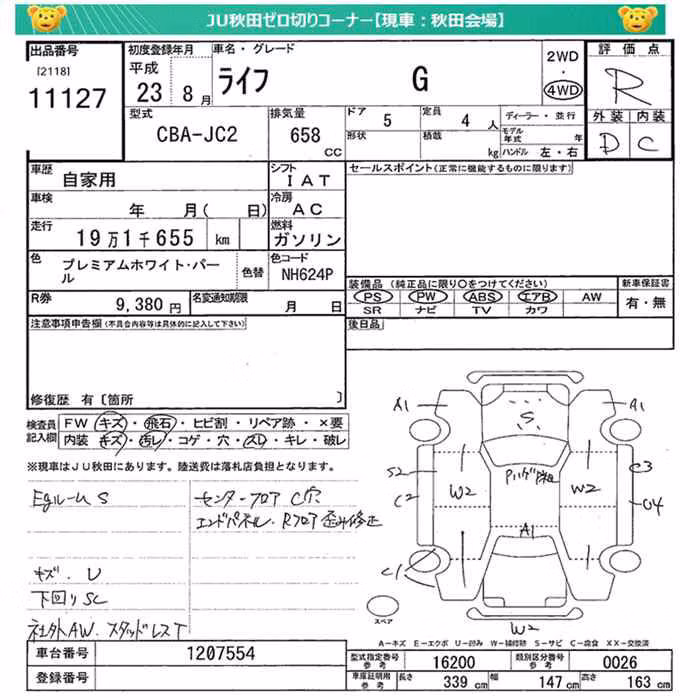 JU秋田ゼロ切りコーナー【現車：秋田会場】
出品番号
[2118]
11127
初度登録年月
平成
23 8 月
車名・グレード
ライフ G
2WD
・
4WD
評価点
R
外装 内装
D C
型式
CBA-JC2
排気量
658
CC
ドア
5
定員
4 人
形状
積載
kg
ディーラー・並行
モデル年式 年
ハンドル 左・右
車歴
自家用
シフト
IAT
車検
年 月( 日)
冷房
AC
走行
19万1千655 km
燃料
ガソリン
色
プレミアムホワイト・パール
色替
色コード
NH624P
R券
9,380 円
名変通知期限
月 日
セールスポイント(正常に機能するものに限ります)
装備品(純正品に限り○をつけてください)
PS PW ABS エアB AW
SR ナビ TV カワ
新車保証書
有・無
後日品
注意事項申告欄(不具合内容等は具体的に記入して下さい)
修復歴 有〔箇所 〕
検査員
記入欄
FW キズ・飛石・ヒビ割・リペア跡・×要
内装 キズ・汚レ・コゲ・穴・スレ・キレ・破レ
※現車はJU秋田にあります。陸送費は落札店負担となります。
Egルーム S
センターフロア C穴
エンドパネル、Rフロア 歪み修正
キズ、U
下回りSC
社外AW、スタッドレスT
A1
A1
S
S2
C2
W2
W2
C3
04
A1
C1
W2
スペア
A－キズ E－エクボ U－凹み W－補修跡 S－サビ C－腐食 XX－交換済
車台番号
1207554
登録番号
型式指定番号
参考
16200
類別区分番号
参考
0026
車庫証明用
参考
長さ 339 cm
幅 147 cm
高さ 163 cm